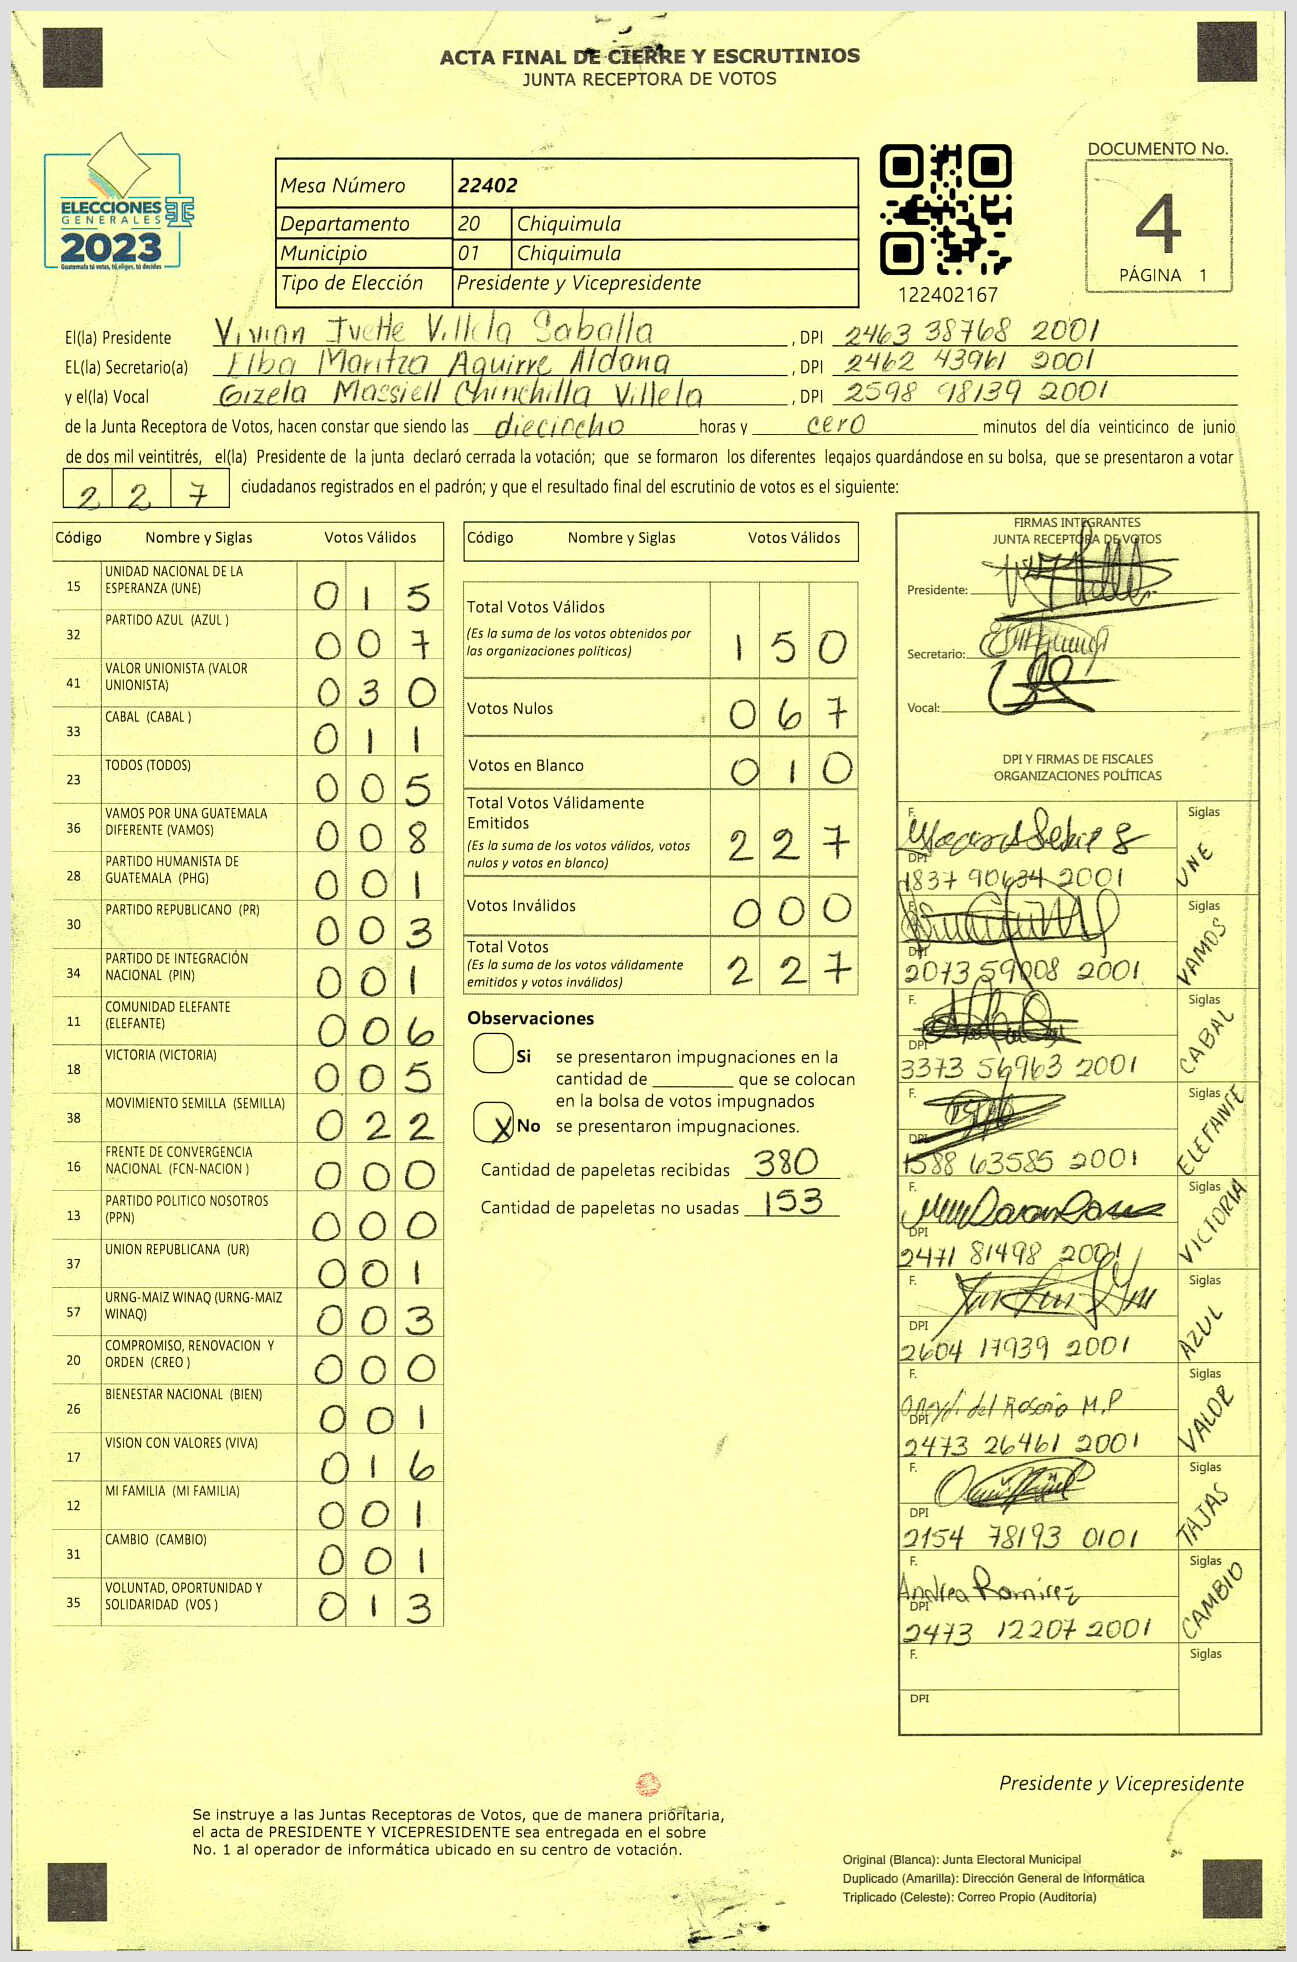 ACTA FINAL DE CIERRE Y ESCRUTINIOS
JUNTA RECEPTORA DE VOTOS
ELECCIONES
GENERALES
2023
Guatemala tú votas, tú eliges, tú decides
Mesa Número 22402
Departamento 20 Chiquimula
Municipio 01 Chiquimula
Tipo de Elección Presidente y Vicepresidente
122402167
DOCUMENTO No.
4
PÁGINA 1
El(la) Presidente Vivian Ivette Villela Saballa, DPI 2463 38768 2001
EL(la) Secretario(a) Elba Maritza Aguirre Aldana, DPI 2462 43961 2001
y el(la) Vocal Gizela Massiell Chinchilla Villela, DPI 2598 98139 2001
de la Junta Receptora de Votos, hacen constar que siendo las dieciocho horas y cero minutos del día veinticinco de junio
de dos mil veintitrés, el(la) Presidente de la junta declaró cerrada la votación; que se formaron los diferentes legajos quardándose en su bolsa, que se presentaron a votar
227 ciudadanos registrados en el padrón; y que el resultado final del escrutinio de votos es el siguiente:
Código Nombre y Siglas Votos Válidos
15 UNIDAD NACIONAL DE LA
ESPERANZA (UNE) 015
32 PARTIDO AZUL (AZUL ) 007
41 VALOR UNIONISTA (VALOR
UNIONISTA) 030
33 CABAL (CABAL ) 011
23 TODOS (TODOS) 005
36 VAMOS POR UNA GUATEMALA
DIFERENTE (VAMOS) 008
28 PARTIDO HUMANISTA DE
GUATEMALA (PHG) 001
30 PARTIDO REPUBLICANO (PR) 003
34 PARTIDO DE INTEGRACIÓN
NACIONAL (PIN) 001
11 COMUNIDAD ELEFANTE
(ELEFANTE) 006
18 VICTORIA (VICTORIA) 005
38 MOVIMIENTO SEMILLA (SEMILLA) 022
16 FRENTE DE CONVERGENCIA
NACIONAL (FCN-NACION ) 000
13 PARTIDO POLITICO NOSOTROS
(PPN) 000
37 UNION REPUBLICANA (UR) 001
57 URNG-MAIZ WINAQ (URNG-MAIZ
WINAQ) 003
20 COMPROMISO, RENOVACION Y
ORDEN (CREO ) 000
26 BIENESTAR NACIONAL (BIEN) 001
17 VISION CON VALORES (VIVA) 016
12 MI FAMILIA (MI FAMILIA) 001
31 CAMBIO (CAMBIO) 001
35 VOLUNTAD, OPORTUNIDAD Y
SOLIDARIDAD (VOS ) 013
Código Nombre y Siglas Votos Válidos
Total Votos Válidos
(Es la suma de los votos obtenidos por
las organizaciones políticas) 150
Votos Nulos 067
Votos en Blanco 010
Total Votos Válidamente
Emitidos
(Es la suma de los votos válidos, votos
nulos y votos en blanco) 227
Votos Inválidos 000
Total Votos
(Es la suma de los votos válidamente
emitidos y votos inválidos) 227
Observaciones
Si se presentaron impugnaciones en la
cantidad de ________ que se colocan
en la bolsa de votos impugnados
X No se presentaron impugnaciones.
Cantidad de papeletas recibidas 380
Cantidad de papeletas no usadas 153
FIRMAS INTEGRANTES
JUNTA RECEPTORA DE VOTOS
Presidente:
Secretario:
Vocal:
DPI Y FIRMAS DE FISCALES
ORGANIZACIONES POLÍTICAS
F. Siglas
DPI UNE
1837 90634 2001
F. Siglas
DPI VAMOS
2073 59008 2001
F. Siglas
DPI CABAL
3373 56963 2001
F. Siglas
DPI ELEFANTE
1588 63585 2001
F. Siglas
DPI VICTORIA
2471 81498 2001
F. Siglas
DPI AZUL
2604 17939 2001
F. Siglas
del Rosario M.P
DPI VALOR
2473 26461 2001
F. Siglas
DPI TAJAS
2154 78193 0101
F. Siglas
Andrea Ramirez
DPI CAMBIO
2473 12207 2001
F. Siglas
DPI
Presidente y Vicepresidente
Se instruye a las Juntas Receptoras de Votos, que de manera prioritaria,
el acta de PRESIDENTE Y VICEPRESIDENTE sea entregada en el sobre
No. 1 al operador de informática ubicado en su centro de votación.
Original (Blanca): Junta Electoral Municipal
Duplicado (Amarilla): Dirección General de Informática
Triplicado (Celeste): Correo Propio (Auditoría)